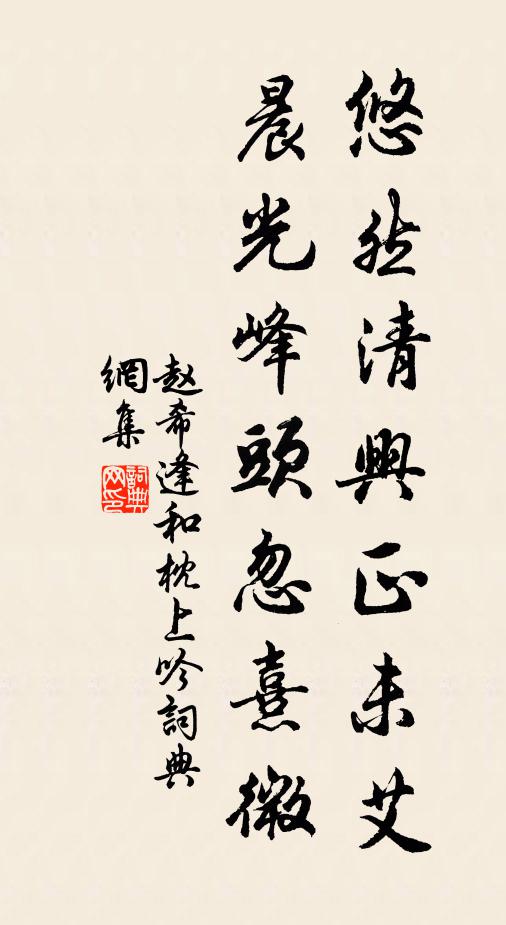 悠然清興正未艾
晨光峰頭忽熹微
赵希逢和枕上吟詞典
網集
詞典
网印